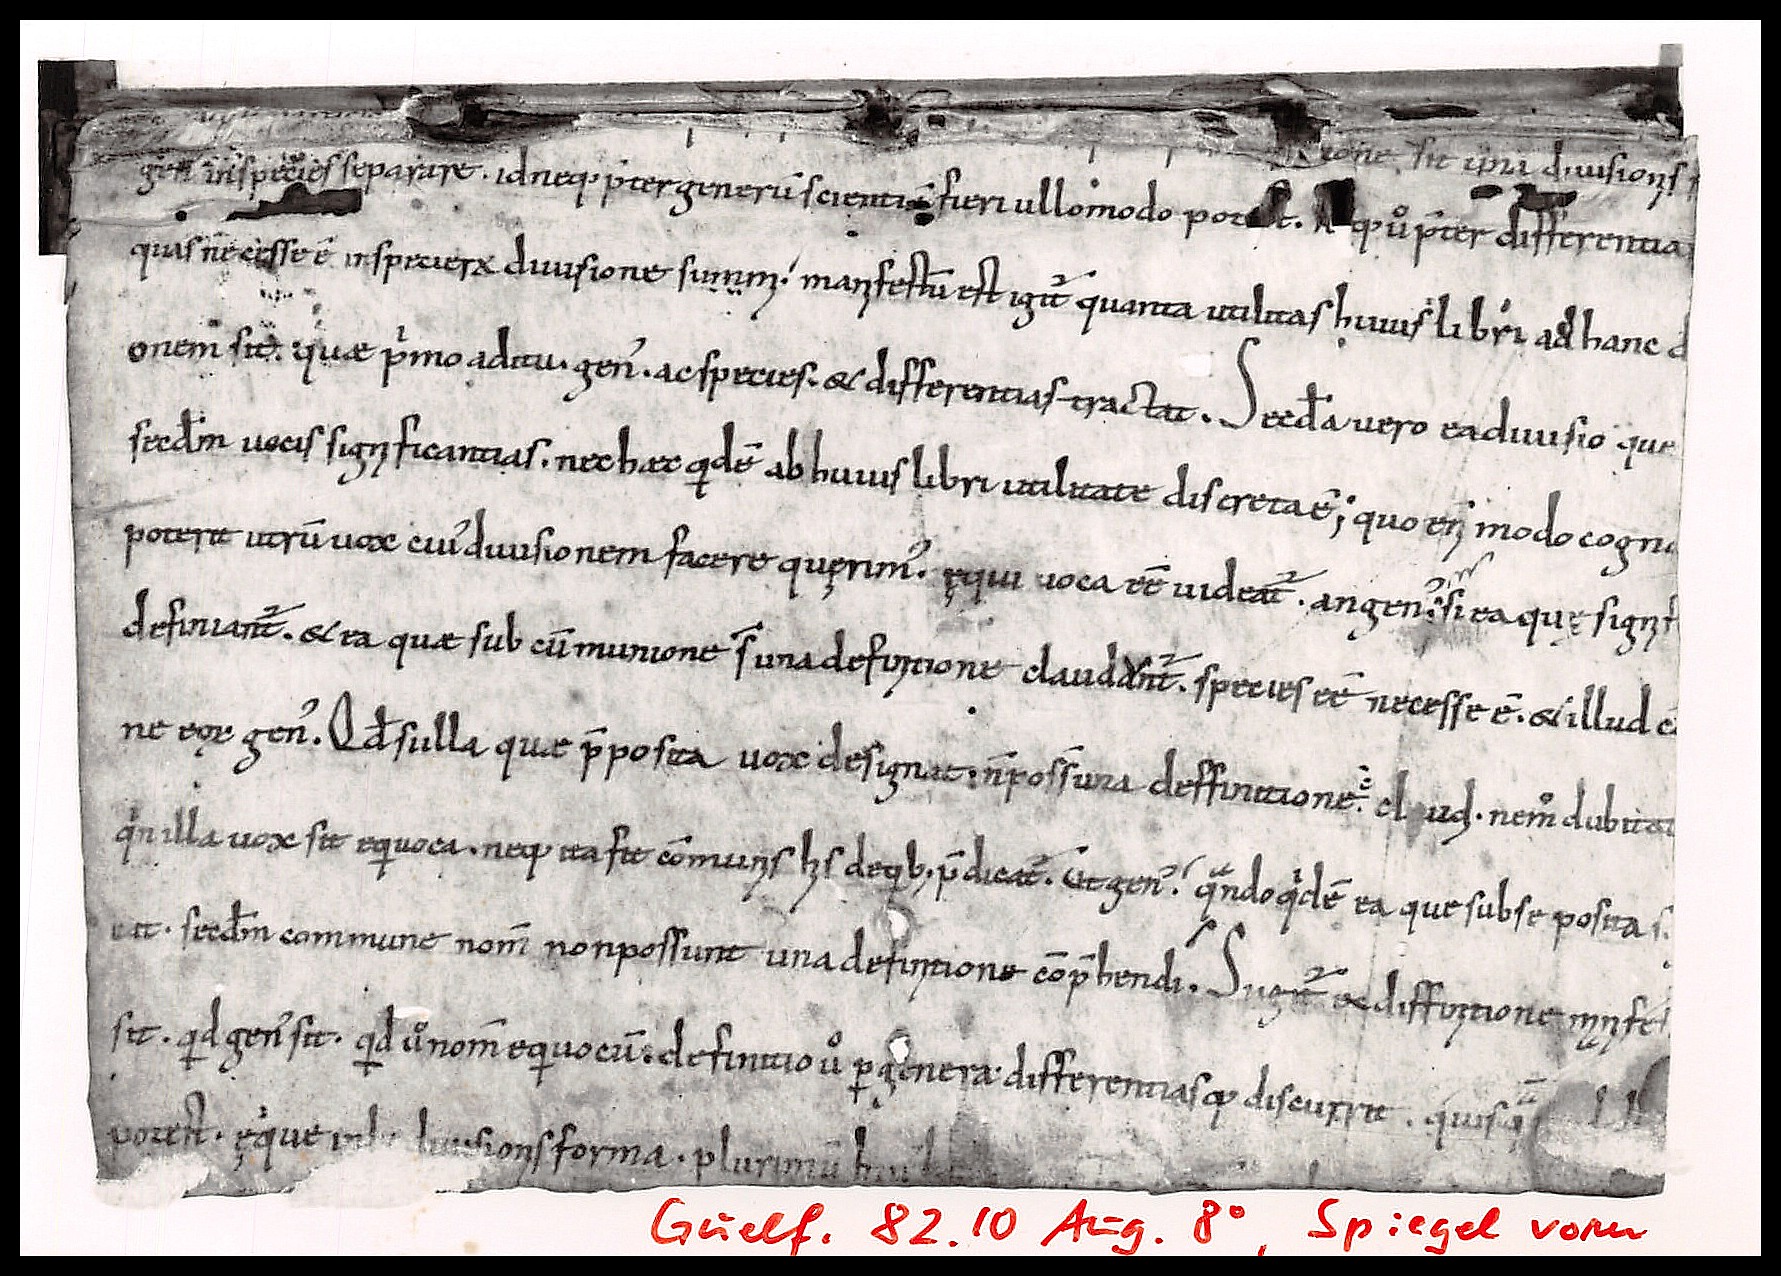 ratione sit ipsa diuisionis
gen̄ in species separare. id neq; p̄ter generū scientiā fieri ullo modo potest. neq; ů p̄ter differentia
quas necesse ē in specierꝝ diuisione sumi. manifestū est igit᷑ quanta utilitas huius libri ad hanc d
onem sit. quæ p̾mo aditu. gen᷒. ac species. & differentias tractat. Secd̄a uero ea diuisio que
secd̄m uocis significantias. nec hæc qdē ab huius libri utilitate discreta ē; quo eni modo cogno
poterit utrū uox cui᷒ diuisionem facere quęrim᷒. ęquiuoca eē uideat᷑. an gen᷒; si ea quę signif
definiant᷑. & ea quæ sub cūmunione s̄ una definitione claudant᷑. species eē necesse ē. & illud cō
ne eoꝝ gen᷒. Qd̄ si illa quæ p̄posita uox designat. n̄ poss̄ una deffinitione claudi. nemo dubitat
qn illa uox sit equoca. neq; ita sit cōmunis his de qb; p̄dicat᷑. ut gen᷒. quando qdē ea que sub se posita s.
secd̄m commune nom̄ non possunt una definitione cōp̄hendi. Si igit᷑ ex diffinitione manifes
sit. qd gen᷒ sit. qd ů nom̄ equocū. definitio ů ꝑ genera differentiasq; discurrit. quis
potest. forma. plurimū
Guelf. 82.10 Aug. 8°, Spiegel vorn